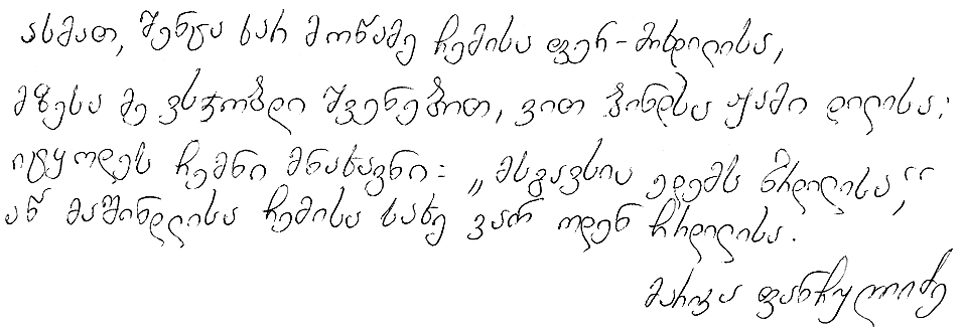 ასმათ, შენცა ხარ მოწამე ჩემისა ფერ-მიხდილისა,
მზესა მე ვსჯობდი შვენებით, ვით ბინდსა ჟამი დილისა;
იტყოდეს ჩემნი მნახავნი: „მსგავსია ედემს ზრდილისა“,
აწ მაშინდლისა ჩემისა სახე ვარ ოდენ ჩრდილისა.
ფანჩულიძე